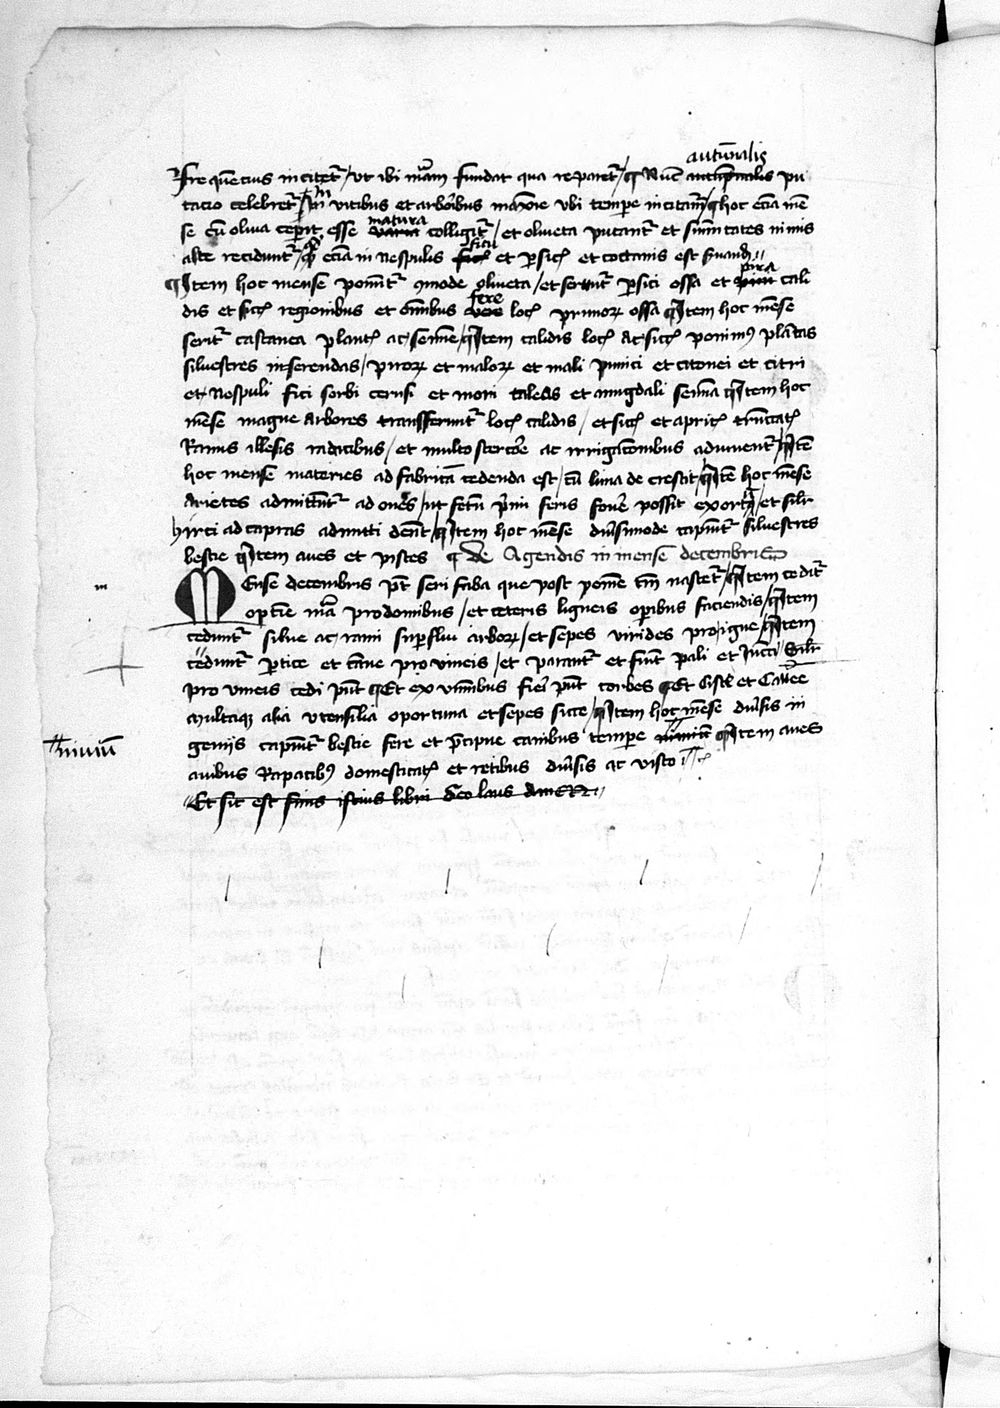 autūnalis
Frequēcius incitet᷑ / ut ibi nīam fundat qua reparet᷑ / ⁊ Nūc autūpnalis pu
tacio celebret᷑ / in vitibus et arboribus maxīe ubi tempe incitam̄ / ⁊ hoc eciā mē
matura
se cū oliva ceperit esse varia colligit᷑ / et oliveta putant᷑ et sūmitates nimis
ficu
alte reciduntur / eciā in nespulis et persicis et coctanis est
pira
Item hoc mense ponunt᷑ oliveta / et serunt᷑ persici ossa et pini cali
fere
dis et siccis regionibus et omnibus vere locis prunorum ossa Item hoc mēse
serit᷑ castanea plantis ac semīe / Item calidis locis ac siccis ponimus plātas
silvestres inserendas / pirorum et malorum et mali punici et citonei et citri
et Nespuli fici sorbi cerusi et mori taleas et amigdali semīa Item hoc
mēse magne arbores transferunt᷑ locis calidis / et siccis et apricis trūcatis
Ramis illesis radicibus / et multo stercore ac irrigacionibus adiuvent᷑ / Itē
hoc mense materies ad fabricā cedenda est / cū luna decrescit / Itē hoc mēse
Arietes admittunt᷑ ad oves / ut fetū primi feris fovere possit exortū / et silr
hirci ad capras admitti debent / Item hoc mēse diversimode capiunt᷑ silvestres
bestie Item aves et pisces ⁊ de Agendis in mense decembris
m
Mense decembris pt seri faba que post nascet᷑ / Item cedit᷑
optīe mā pro domibus / et ceteris ligneis operibus faciendis / Item
cedunt᷑ silve ac rami superflui arborum / et sepes virides pro igne / Item
cedunt᷑ pertice et cāne pro vineis / et parant᷑ et fiunt pali et Silr
pro vineis cedi pūt ⁊ Et ex viminibus fieri pūt corbes ⁊ Et Ciste et Cavee
multaque alia utensilia oportuna et sepes sicce / Item hoc mēse diversis in
nivium
geniis capiunt᷑ bestie fere et precipue canibus tempe Item aves
avibus Rapacibus domesticatis et retibus diversis ac visco
Et sic est finis istius libri deo laus Amen